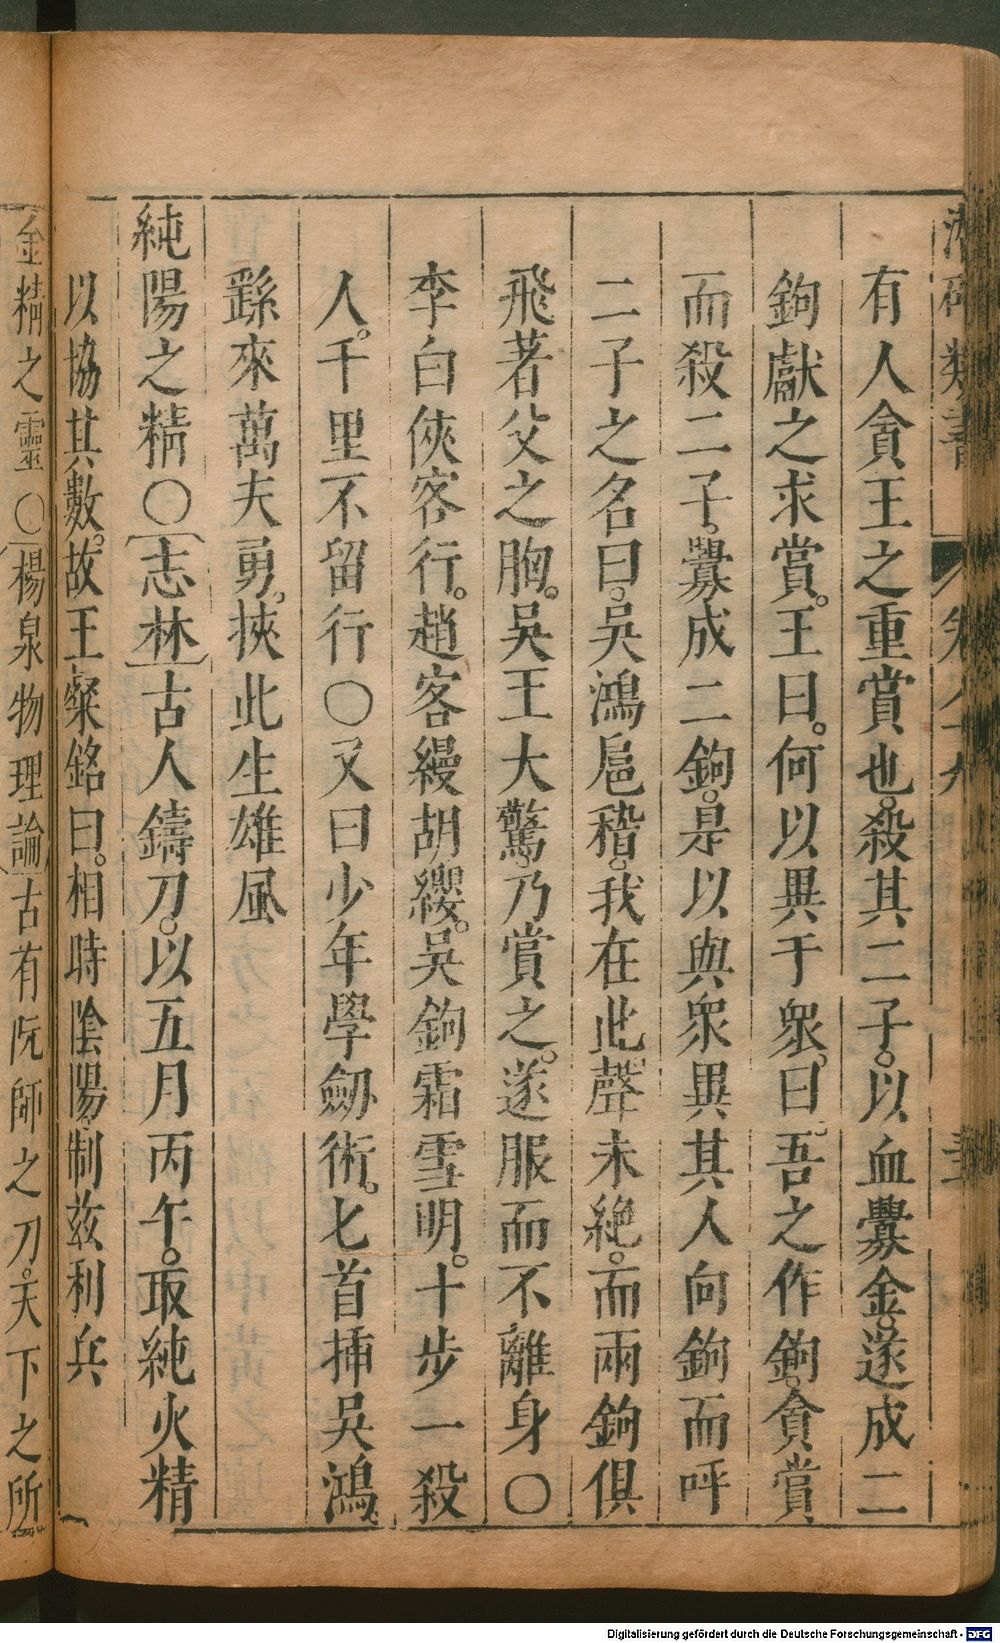 類書 卷八十九
有人貪王之重賞也。殺其二子。以血釁金。遂成二
鉤獻之求賞。王曰。何以異于衆。曰。吾之作鉤。貪賞
而殺二子。釁成二鉤。是以與衆異其人向鉤而呼
二子之名曰。吳鴻扈稽。我在此。聲未絕。而兩鉤俱
飛著父之胸。吳王大驚。乃賞之。遂服而不離身○
李白俠客行。趙客縵胡纓。吳鉤霜雪明。十步一殺
人。千里不留行○又曰少年學劒術。匕首揷吳鴻。
繇來萬夫勇。挾此生雄風
純陽之精○〔志林〕古人鑄刀。以五月丙午。取純火精
以協其數。故王粲銘曰。相時陰陽。制兹利兵
金精之靈○〔楊泉物理論〕古有阮師之刀。天下之所
Digitalisierung gefördert durch die Deutsche Forschungsgemeinschaft - DFG